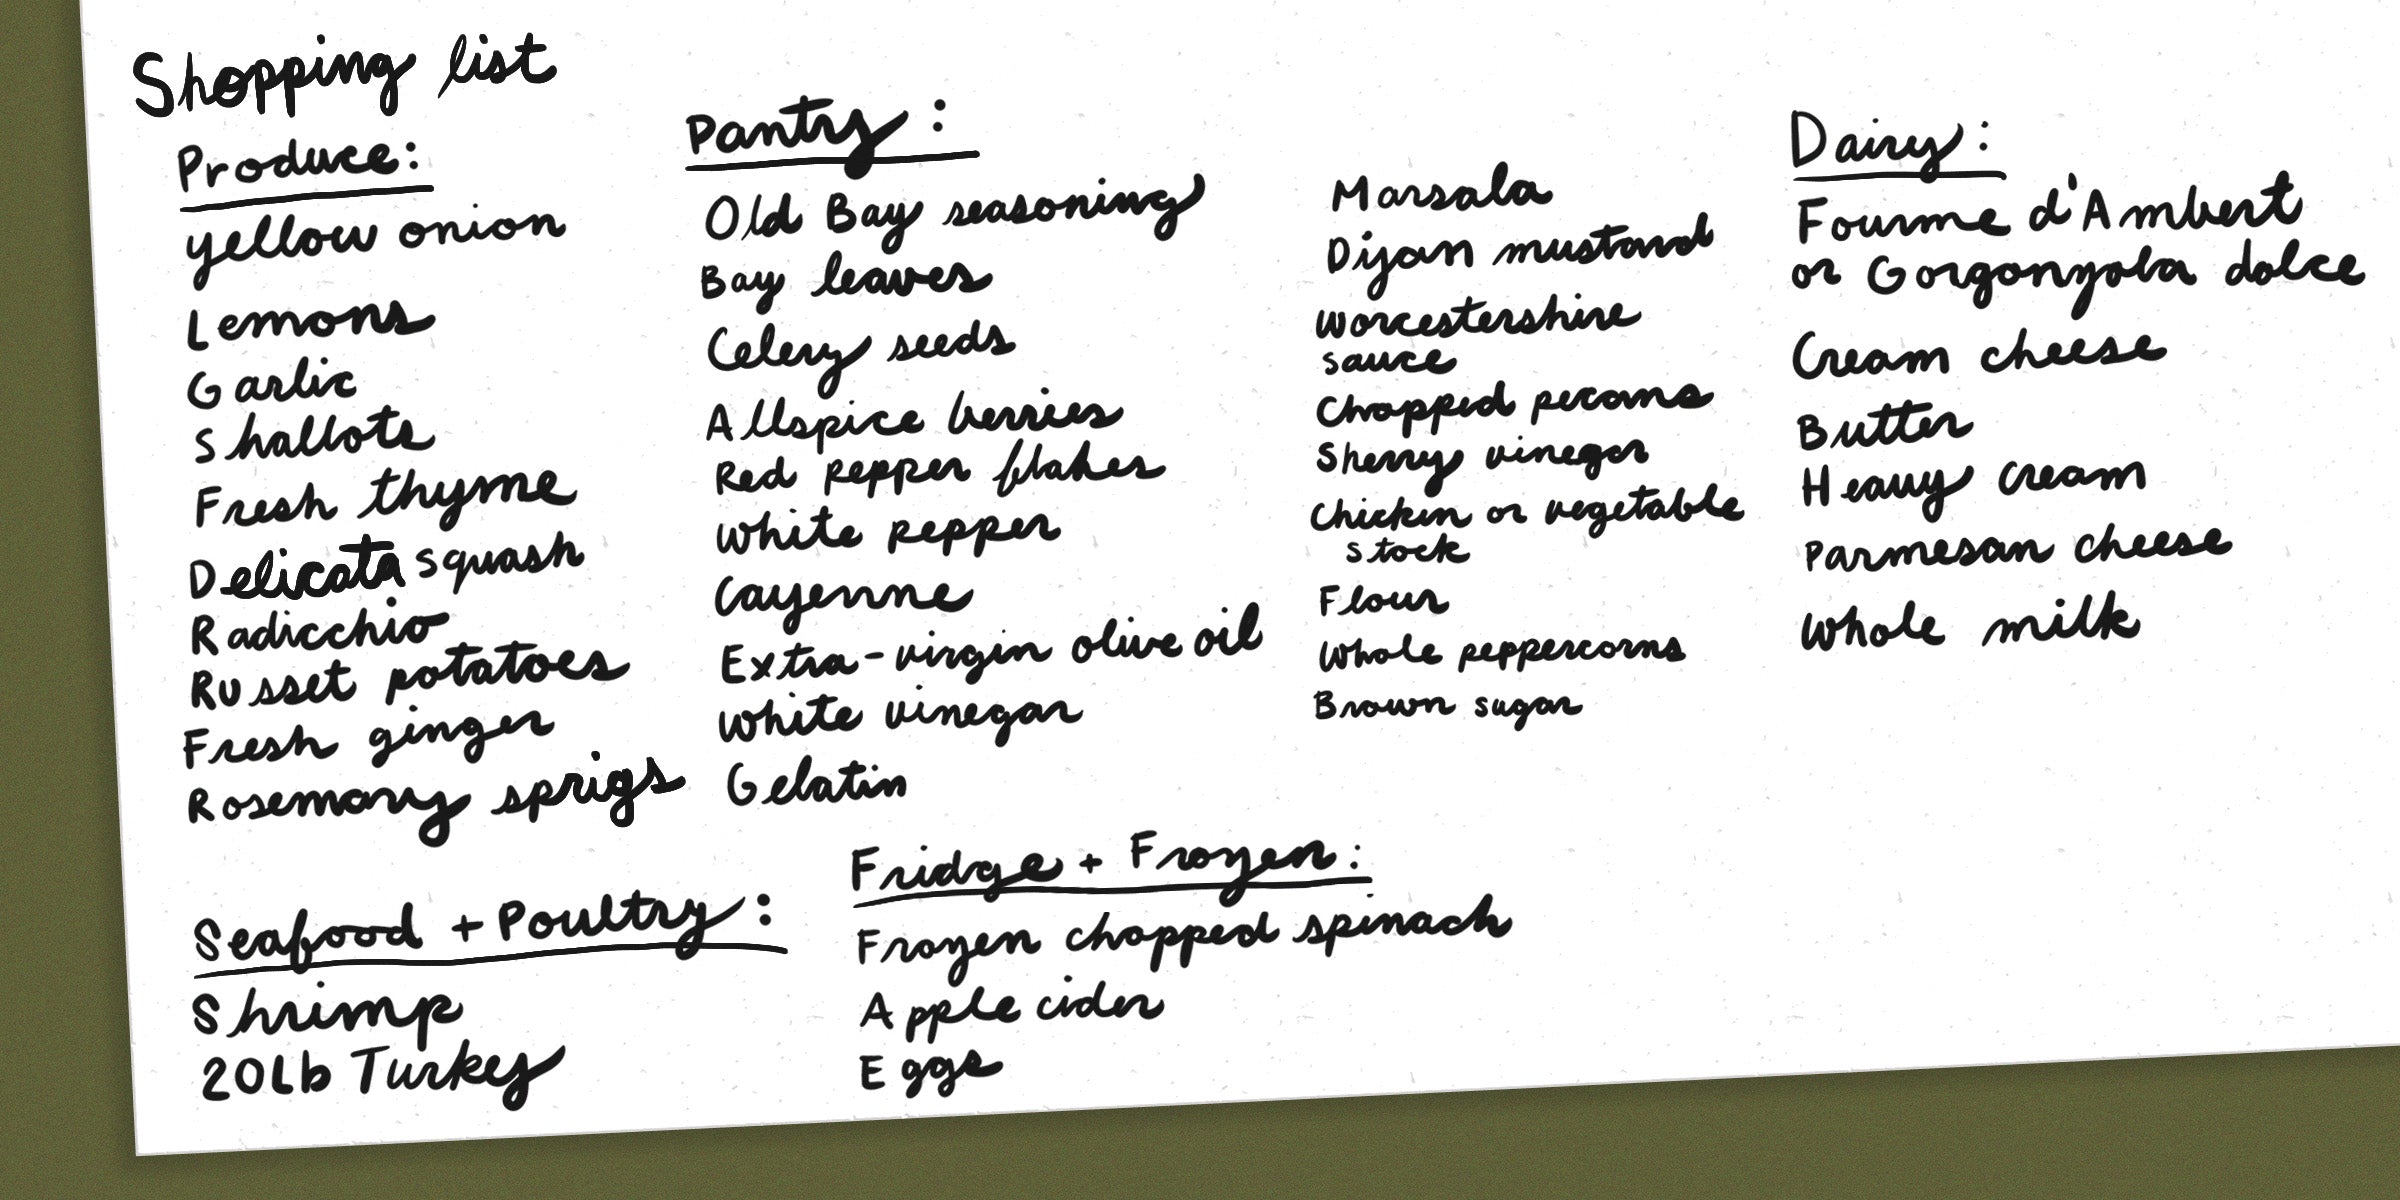 Shopping list
Produce:
yellow onion
Lemons
Garlic
Shallots
Fresh thyme
Delicata squash
Radicchio
Russet potatoes
Fresh ginger
Rosemary sprigs
Pantry:
Old Bay seasoning
Bay leaves
Celery seeds
Allspice berries
Red pepper flakes
White pepper
Cayenne
Extra-virgin olive oil
White vinegar
Gelatin
Marsala
Dijon mustard
Worcestershire
sauce
Chopped pecans
Sherry vinegar
Chicken or vegetable
stock
Flour
Whole peppercorns
Brown sugar
Dairy:
Fourme d'Ambert
or Gorgonzola dolce
Cream cheese
Butter
Heavy cream
Parmesan cheese
Whole milk
Seafood + Poultry:
Shrimp
20Lb Turkey
Fridge + Frozen:
Frozen chopped spinach
Apple cider
Eggs